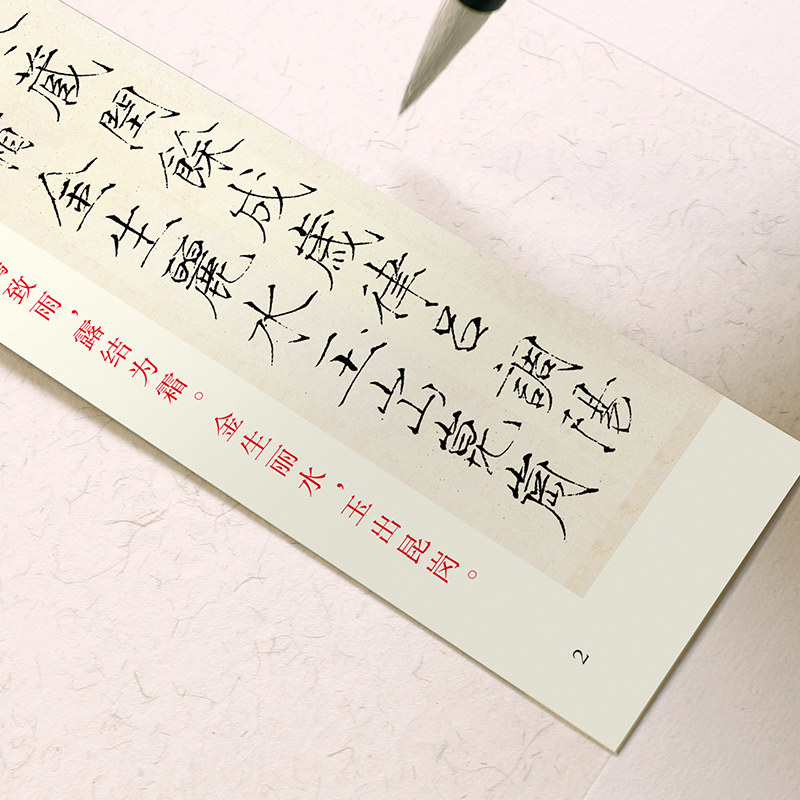 藏閏餘成歲律呂調陽
金生麗水玉出崑崗
致雨，露结为霜。金生丽水，玉出昆岗。
2